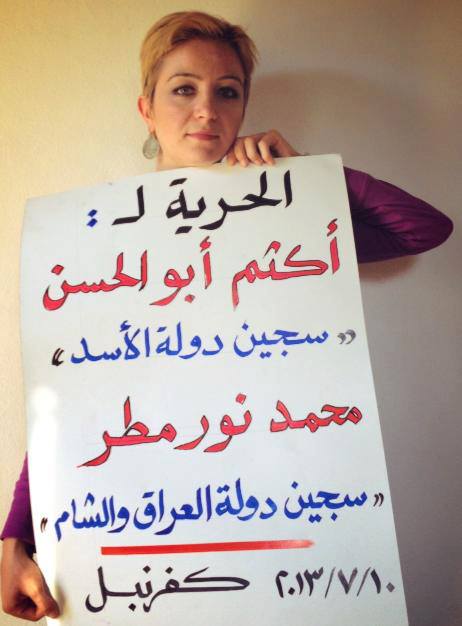 الحرية لـ :
أكثم أبو الحسن
«سجين دولة الأسد»
محمد نور مطر
«سجين دولة العراق والشام»
كفرنبل ٢٠١٣/٧/١٠